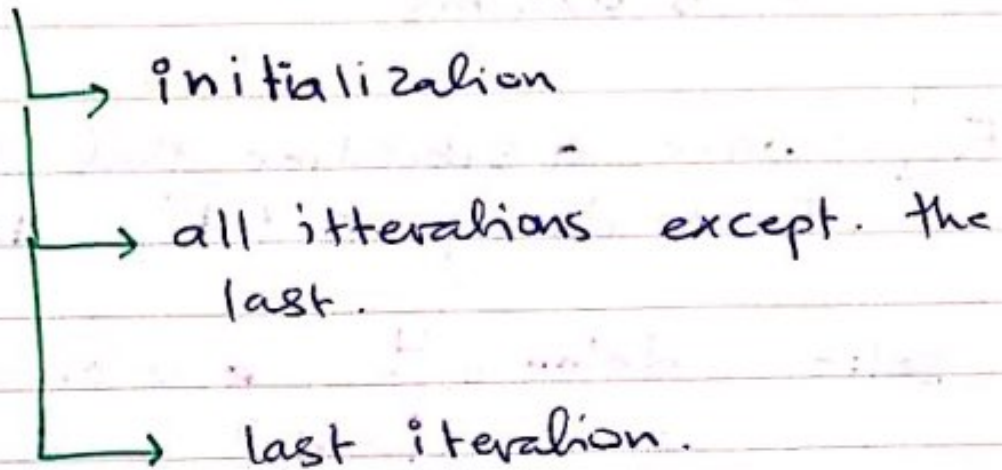 initialization
all itterations except. the
last.
last iteration.